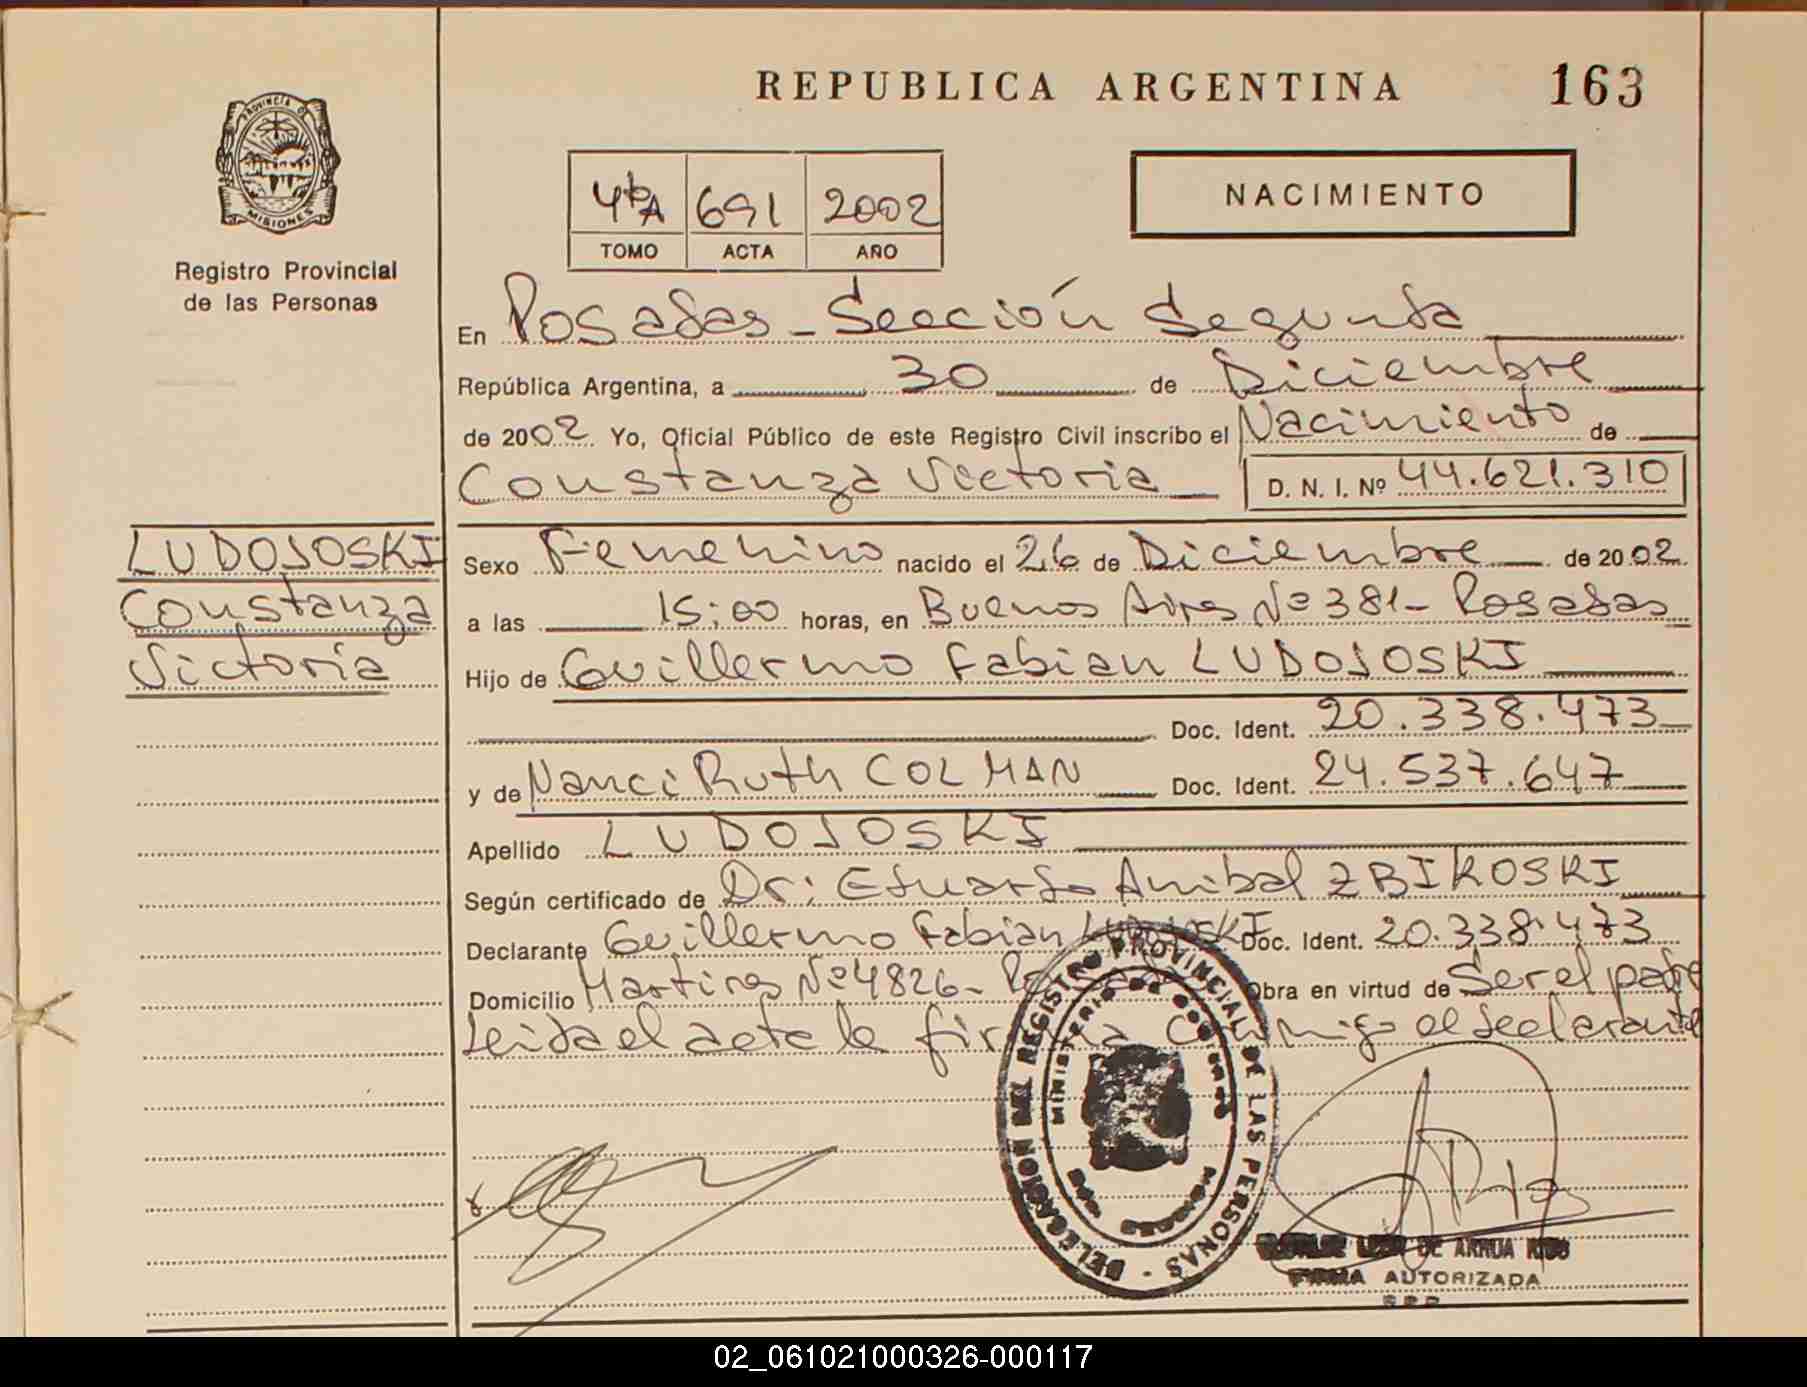 REPUBLICA ARGENTINA
163
PROVINCIA DE
MISIONES
Registro Provincial
de las Personas
4tºA 691 2002
TOMO ACTA AÑO
NACIMIENTO
En Posadas - Sección Segunda
República Argentina, a 30 de Diciembre
de 2002 Yo, Oficial Público de este Registro Civil inscribo el Nacimiento de
Constanza Victoria D. N. I. Nº 44.621.310
LUDOJOSKI
Constanza
Victoria
Sexo Femenino nacido el 26 de Diciembre de 2002
a las 15:00 horas, en Buenos Aires Nº 381 - Posadas
Hijo de Guillermo Fabian LUDOJOSKI
Doc. Ident. 20.338.473
y de Nanci Ruth COLMAN Doc. Ident. 24.537.647
Apellido LUDOJOSKI
Según certificado de Dr: Eduardo Anibal ZBIKOSKI
Declarante Guillermo Fabian LUDOJOSKI Doc. Ident. 20.338.473
Domicilio Martires Nº 4826 - Posadas Obra en virtud de Ser el padre
Leida el acta la firma conmigo el declarante
DELEGACION DEL REGISTRO PROVINCIAL DE LAS PERSONAS -
MINISTERIO DE GOBIERNO
DE ARRUA RIOS
FIRMA AUTORIZADA
R.P.P.
02_061021000326-000117